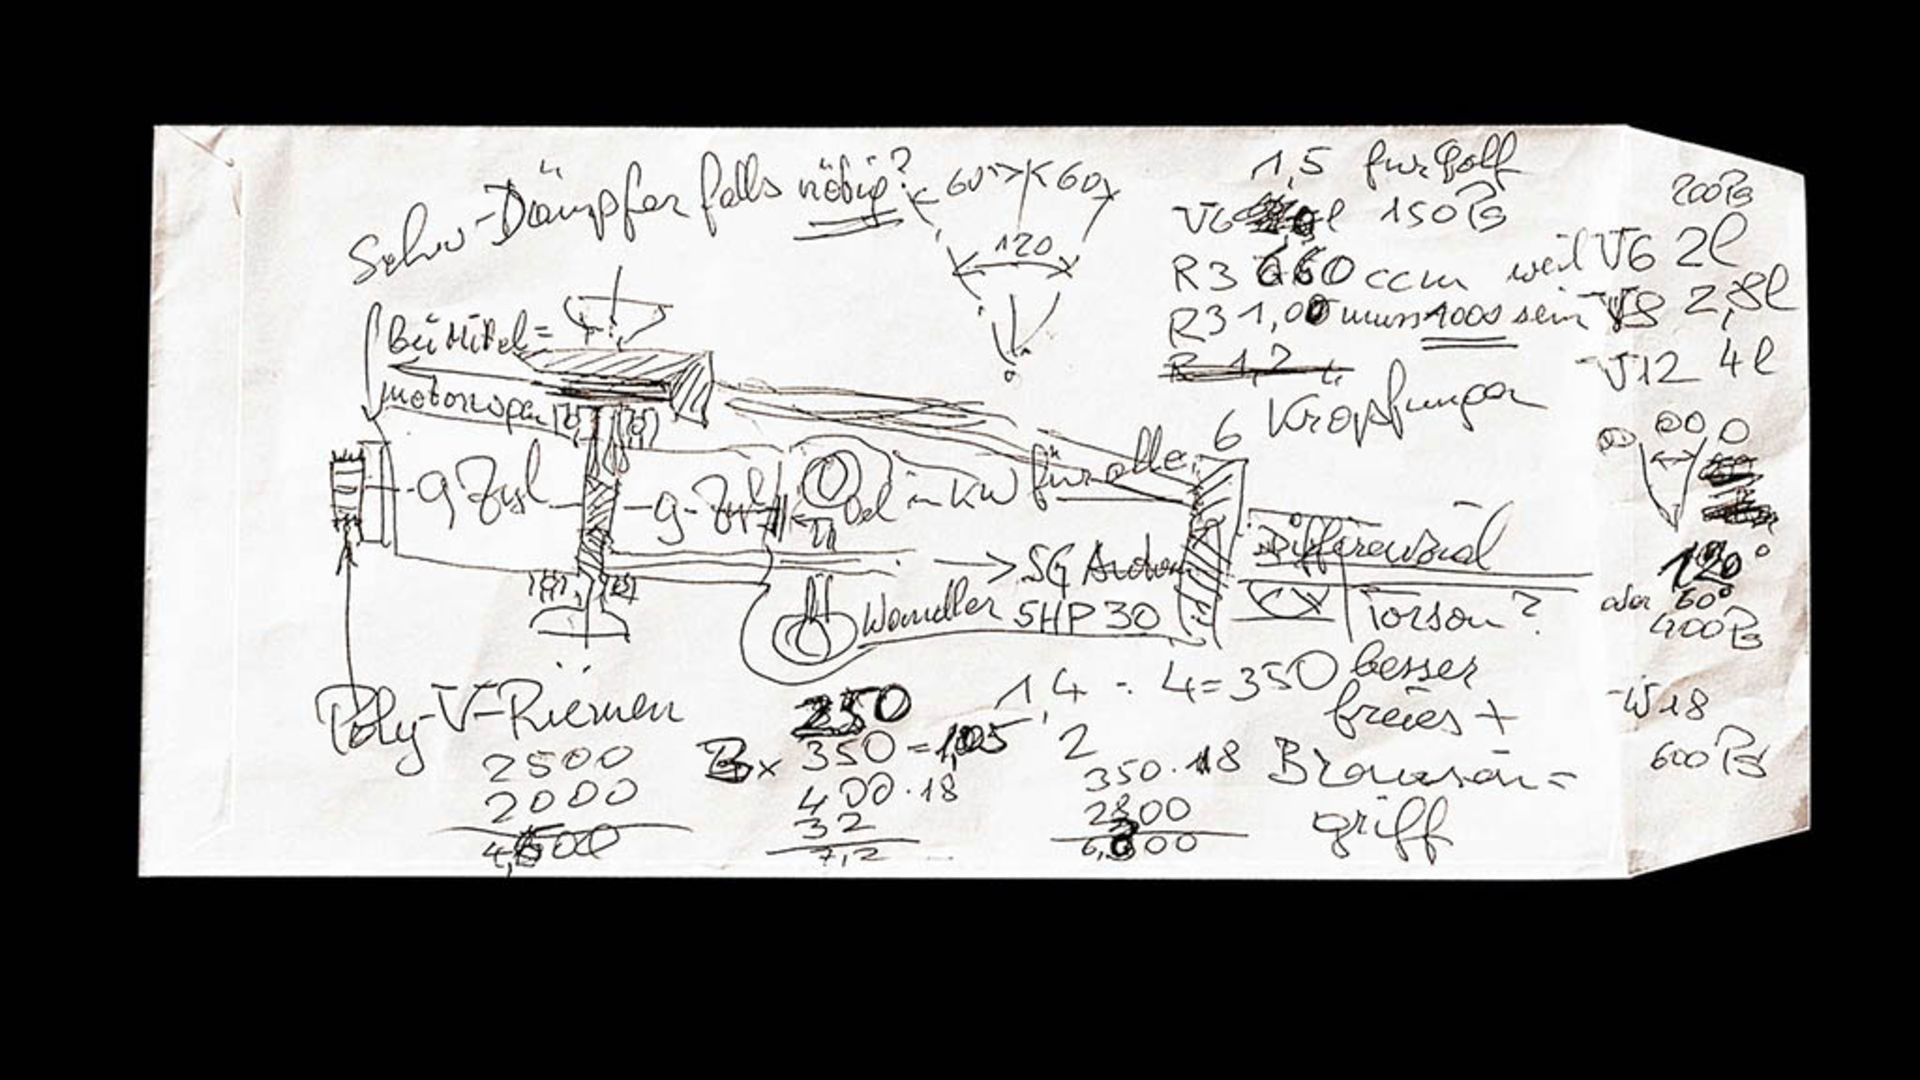 Schw-Dämpfer falls nötig?
60°
60
120
1,5 für Golf
V6
150 PS
R3 660 ccm weil V6 2l
R3 1,00 muss 1000 sein V8 2,8l
V12 4l
200 PS
Bei Mittel=
motorwagen
6 Kröpfungen
9 Zyl
9-Zyl
in KW für alle
Differenzial
SG
Wandler 5HP30
Torsen?
120°
oder 60°
400 PS
W18
600 PS
Poly-V-Riemen
2500
2000
4,500
250
3x 350 = 1,05
400·18
32
7,2
1,4 : 4 = 350
2
350·18
2800
6,300
besser
freies +
griff